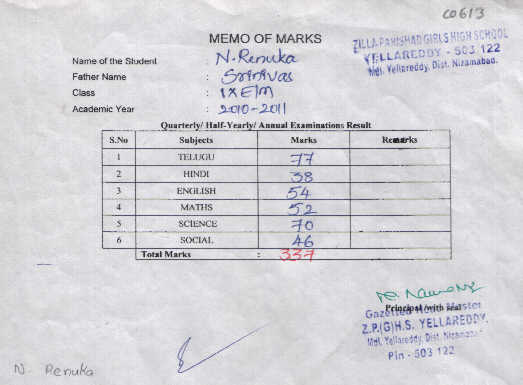 C0613
MEMO OF MARKS
ZILLA PARISHAD GIRLS HIGH SCHOOL
YELLAREDDY - 503 122
Mdl. Yellareddy, Dist. Nizamabad.
Name of the Student : N. Renuka
Father Name : Srinivas
Class : IX E/M
Academic Year : 2010-2011
Quarterly/ Half-Yearly/ Annual Examinations Result
S.No Subjects Marks Remarks
1 TELUGU 77
2 HINDI 38
3 ENGLISH 54
4 MATHS 52
5 SCIENCE 70
6 SOCIAL 46
Total Marks : 337
Principal /with seal
Gazetted Head Master
Z.P.(G)H.S. YELLAREDDY,
Mdl. Yellareddy, Dist. Nizamabad
Pin - 503 122
N. Renuka